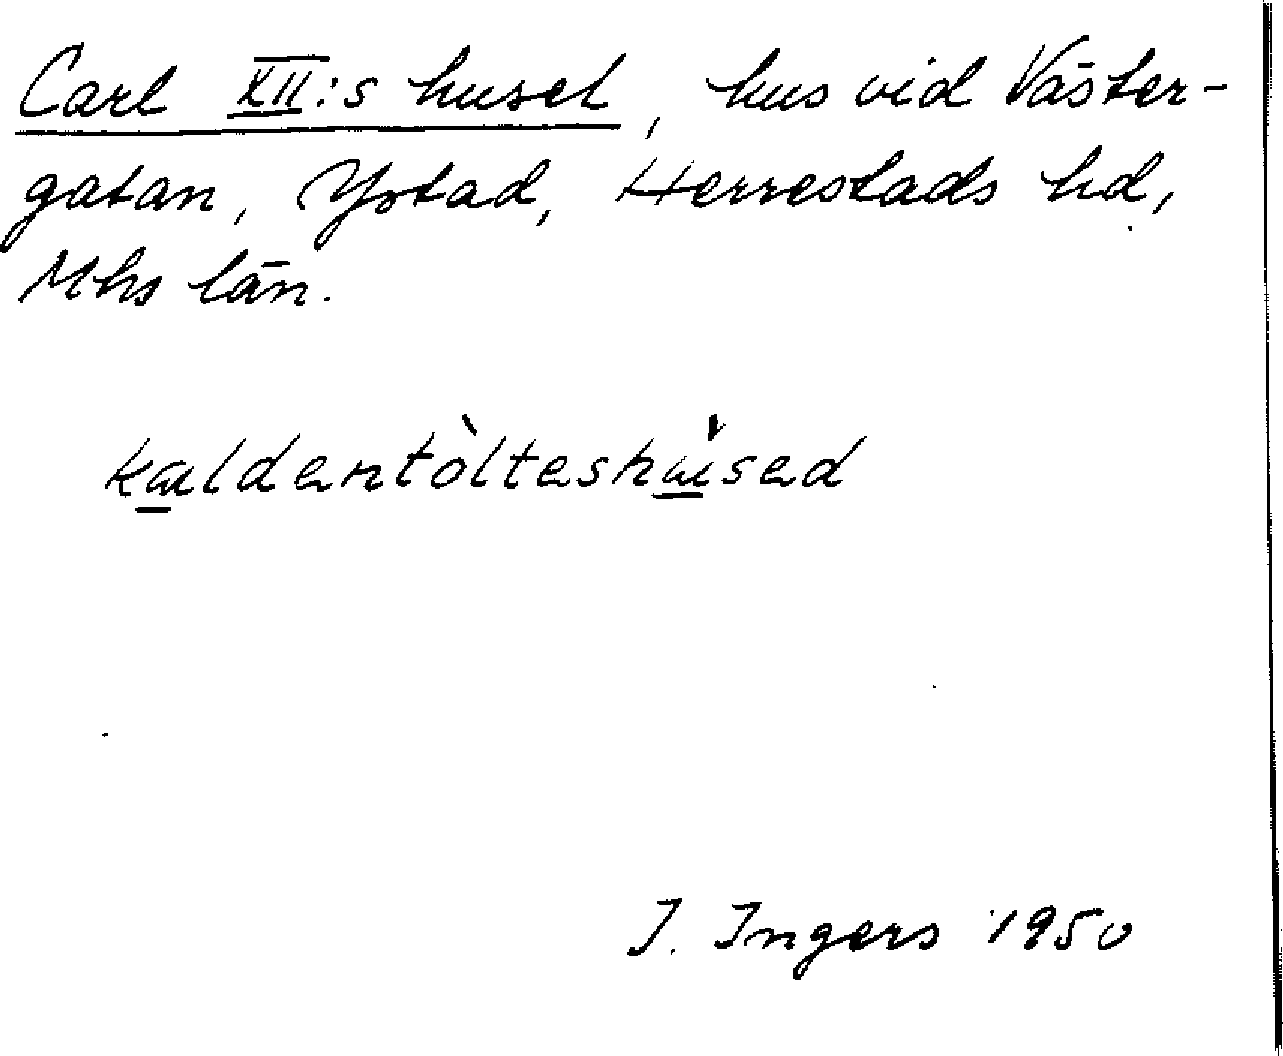 Carl XII:s huset, hus vid Väster-
gatan, Ystad, Herrestads hd,
Mhs län.
kaldentòlteshúsed
I. Ingers 1950